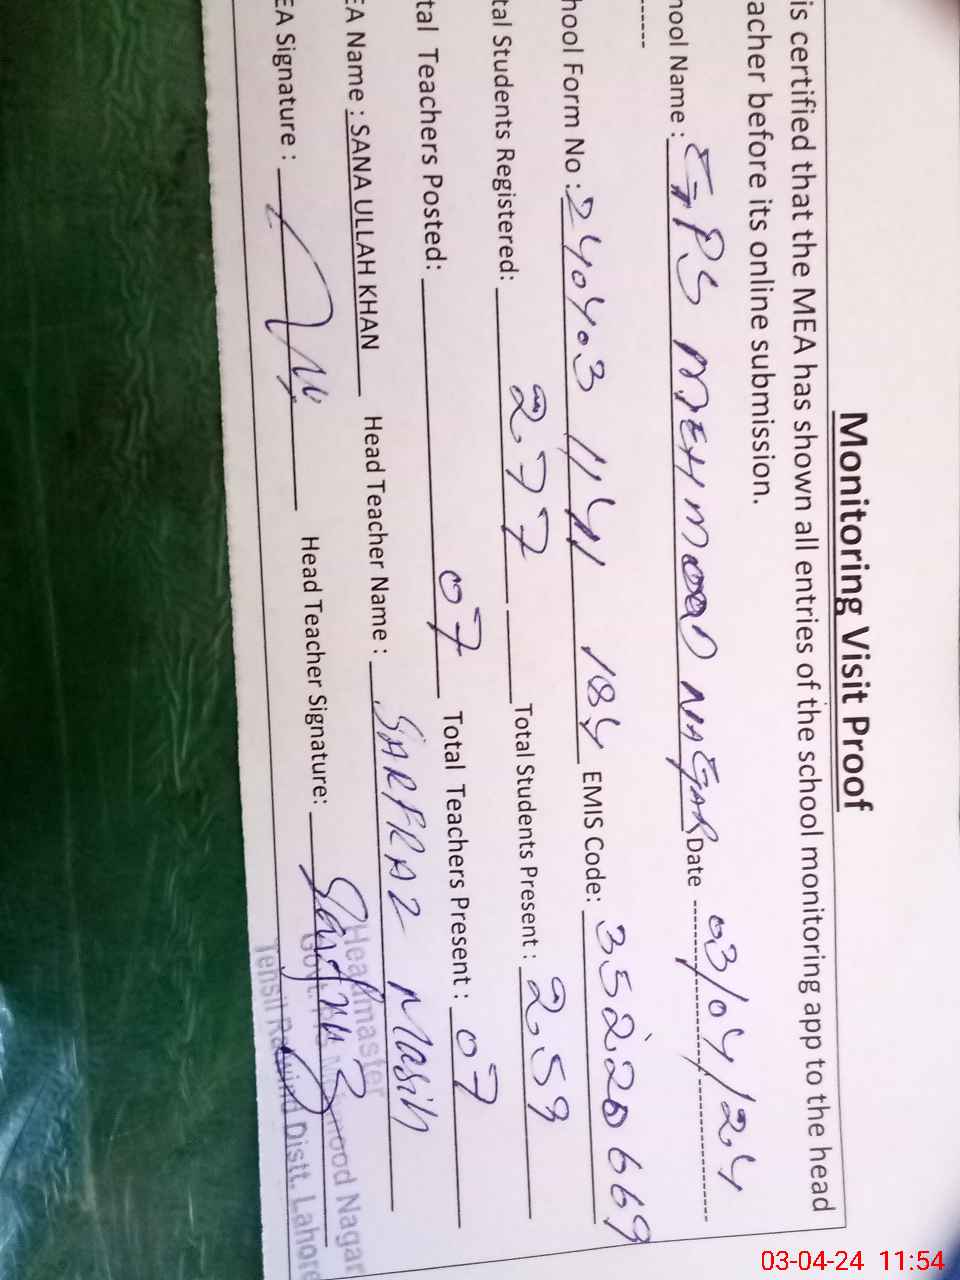 Monitoring Visit Proof
is certified that the MEA has shown all entries of the school monitoring app to the head
acher before its online submission.
hool Name : GPS MEHMOOD NAGAR Date 03/04/24
hool Form No : 240403 1141 184 EMIS Code: 35220669
tal Students Registered: 277 Total Students Present : 259
tal Teachers Posted: 07 Total Teachers Present : 07
EA Name : SANA ULLAH KHAN Head Teacher Name : SARFRAZ Masih
EA Signature : Head Teacher Signature:
Headmaster
Govt. Mehmood Nagar
Tehsil Raiwind Distt. Lahore
03-04-24 11:54